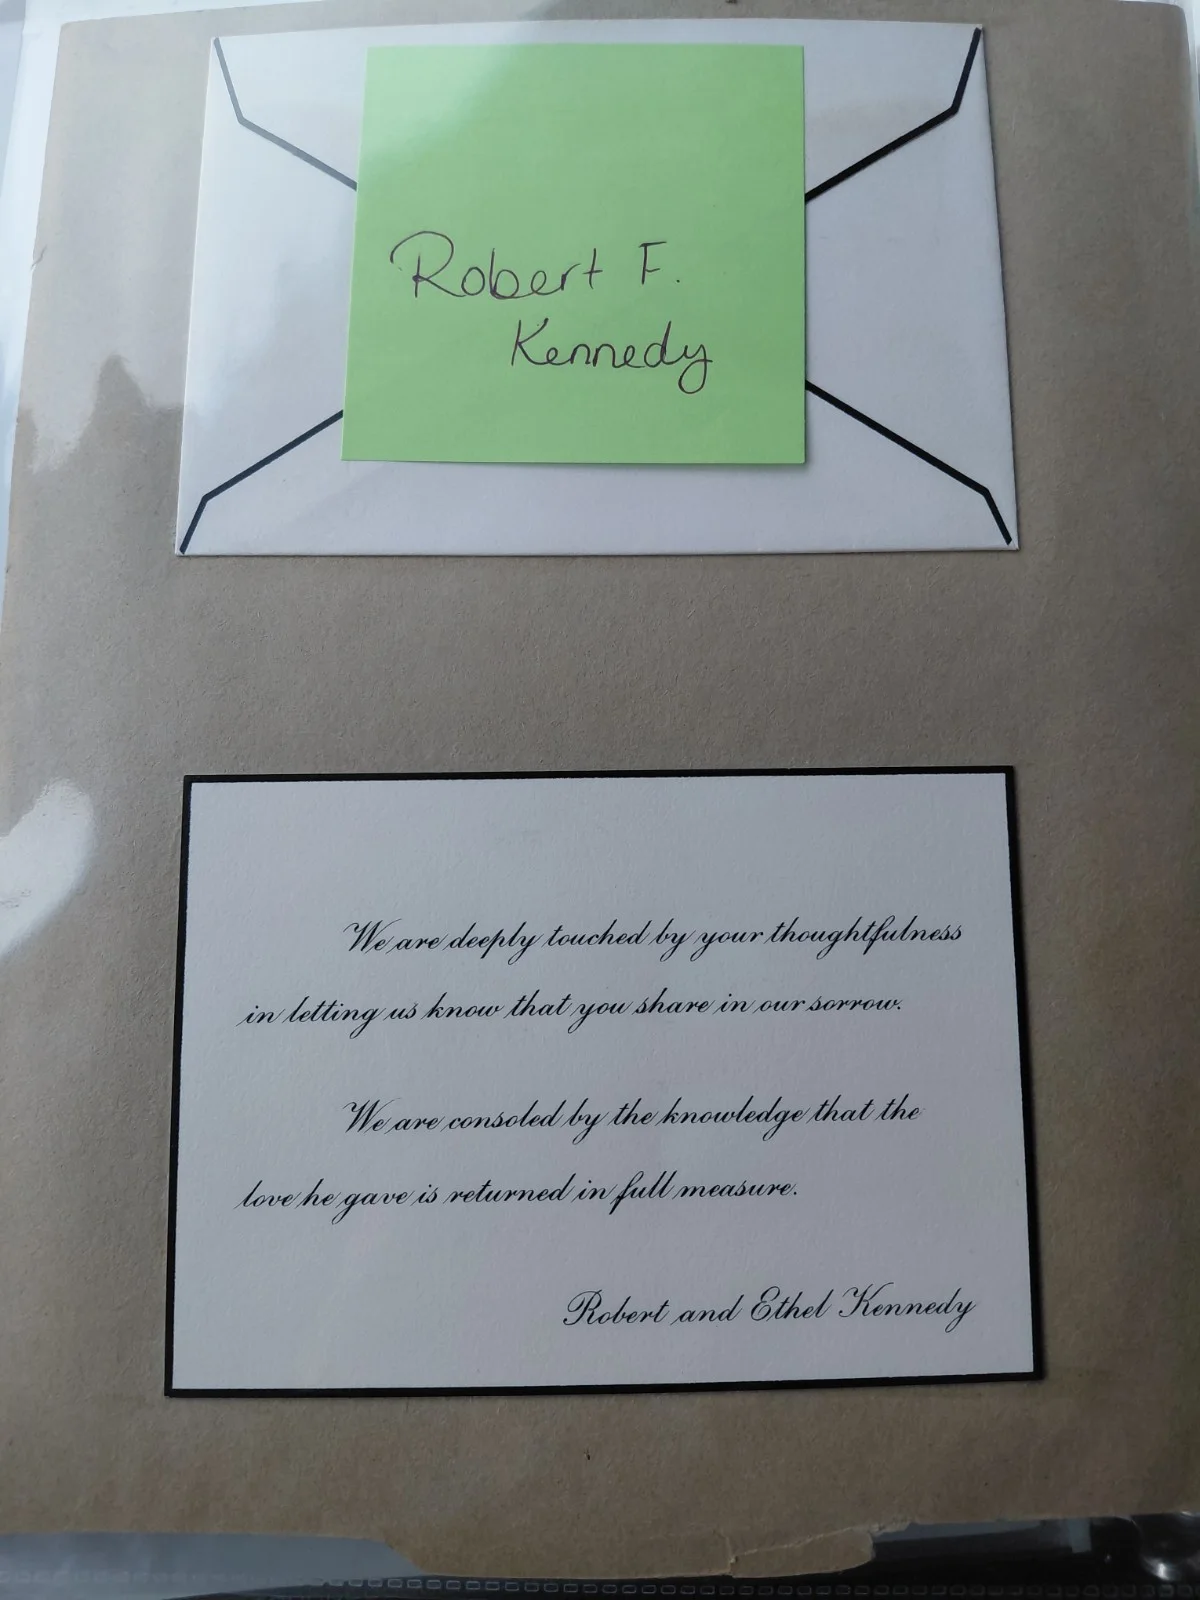 Robert F.
Kennedy
We are deeply touched by your thoughtfulness
in letting us know that you share in our sorrow.
We are consoled by the knowledge that the
love he gave is returned in full measure.
Robert and Ethel Kennedy